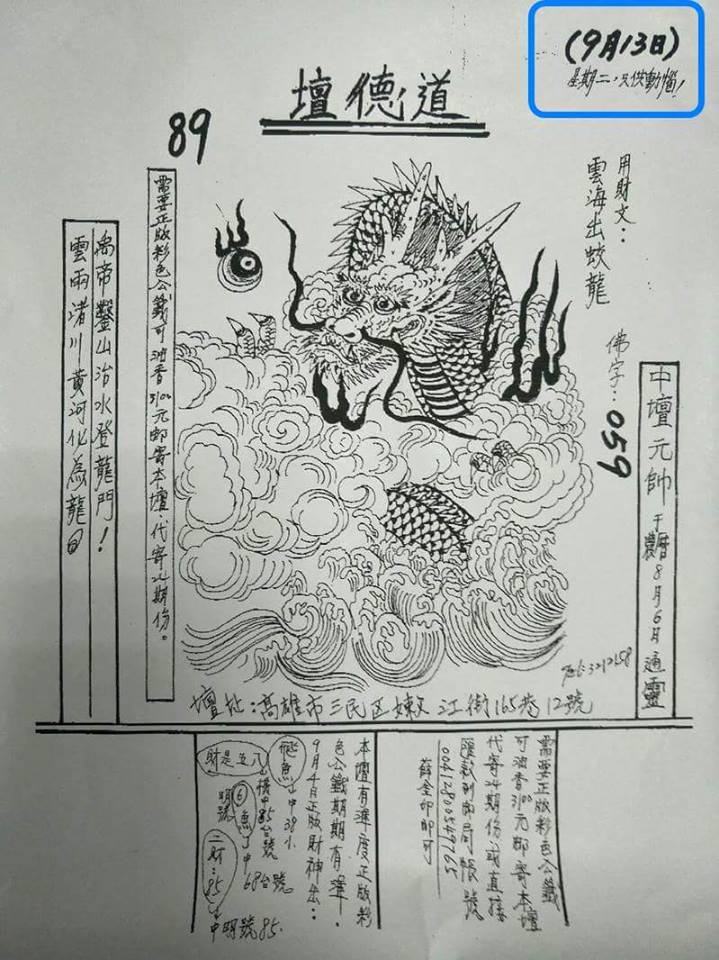 (9月13日)
星期二，只供動惱！
道德壇
89
用財文：
雲海出蛟龍
佛字：059
中壇元帥 于農曆8月6月通靈
需要正版彩色公籤可油香3100元郵寄本壇．代寄24期份。
禹帝鑿山治水登龍門！
雲雨渚川黃河化為龍
Tel:3212158
壇址：高雄市三民区嫩江街165巷12號
需要正版彩色公籤
可油香3100元郵寄本壇
代寄24期份、或直接
匯款到郵局帳號
00412800549765
薛金印即可
本壇有準度正版彩
色公籤期期有準．
9月4日正版財神出：
飛魚→中38小
財是五八
橋中85台號
明號 ⑥魚→中68台號
二財：85→中明號85.